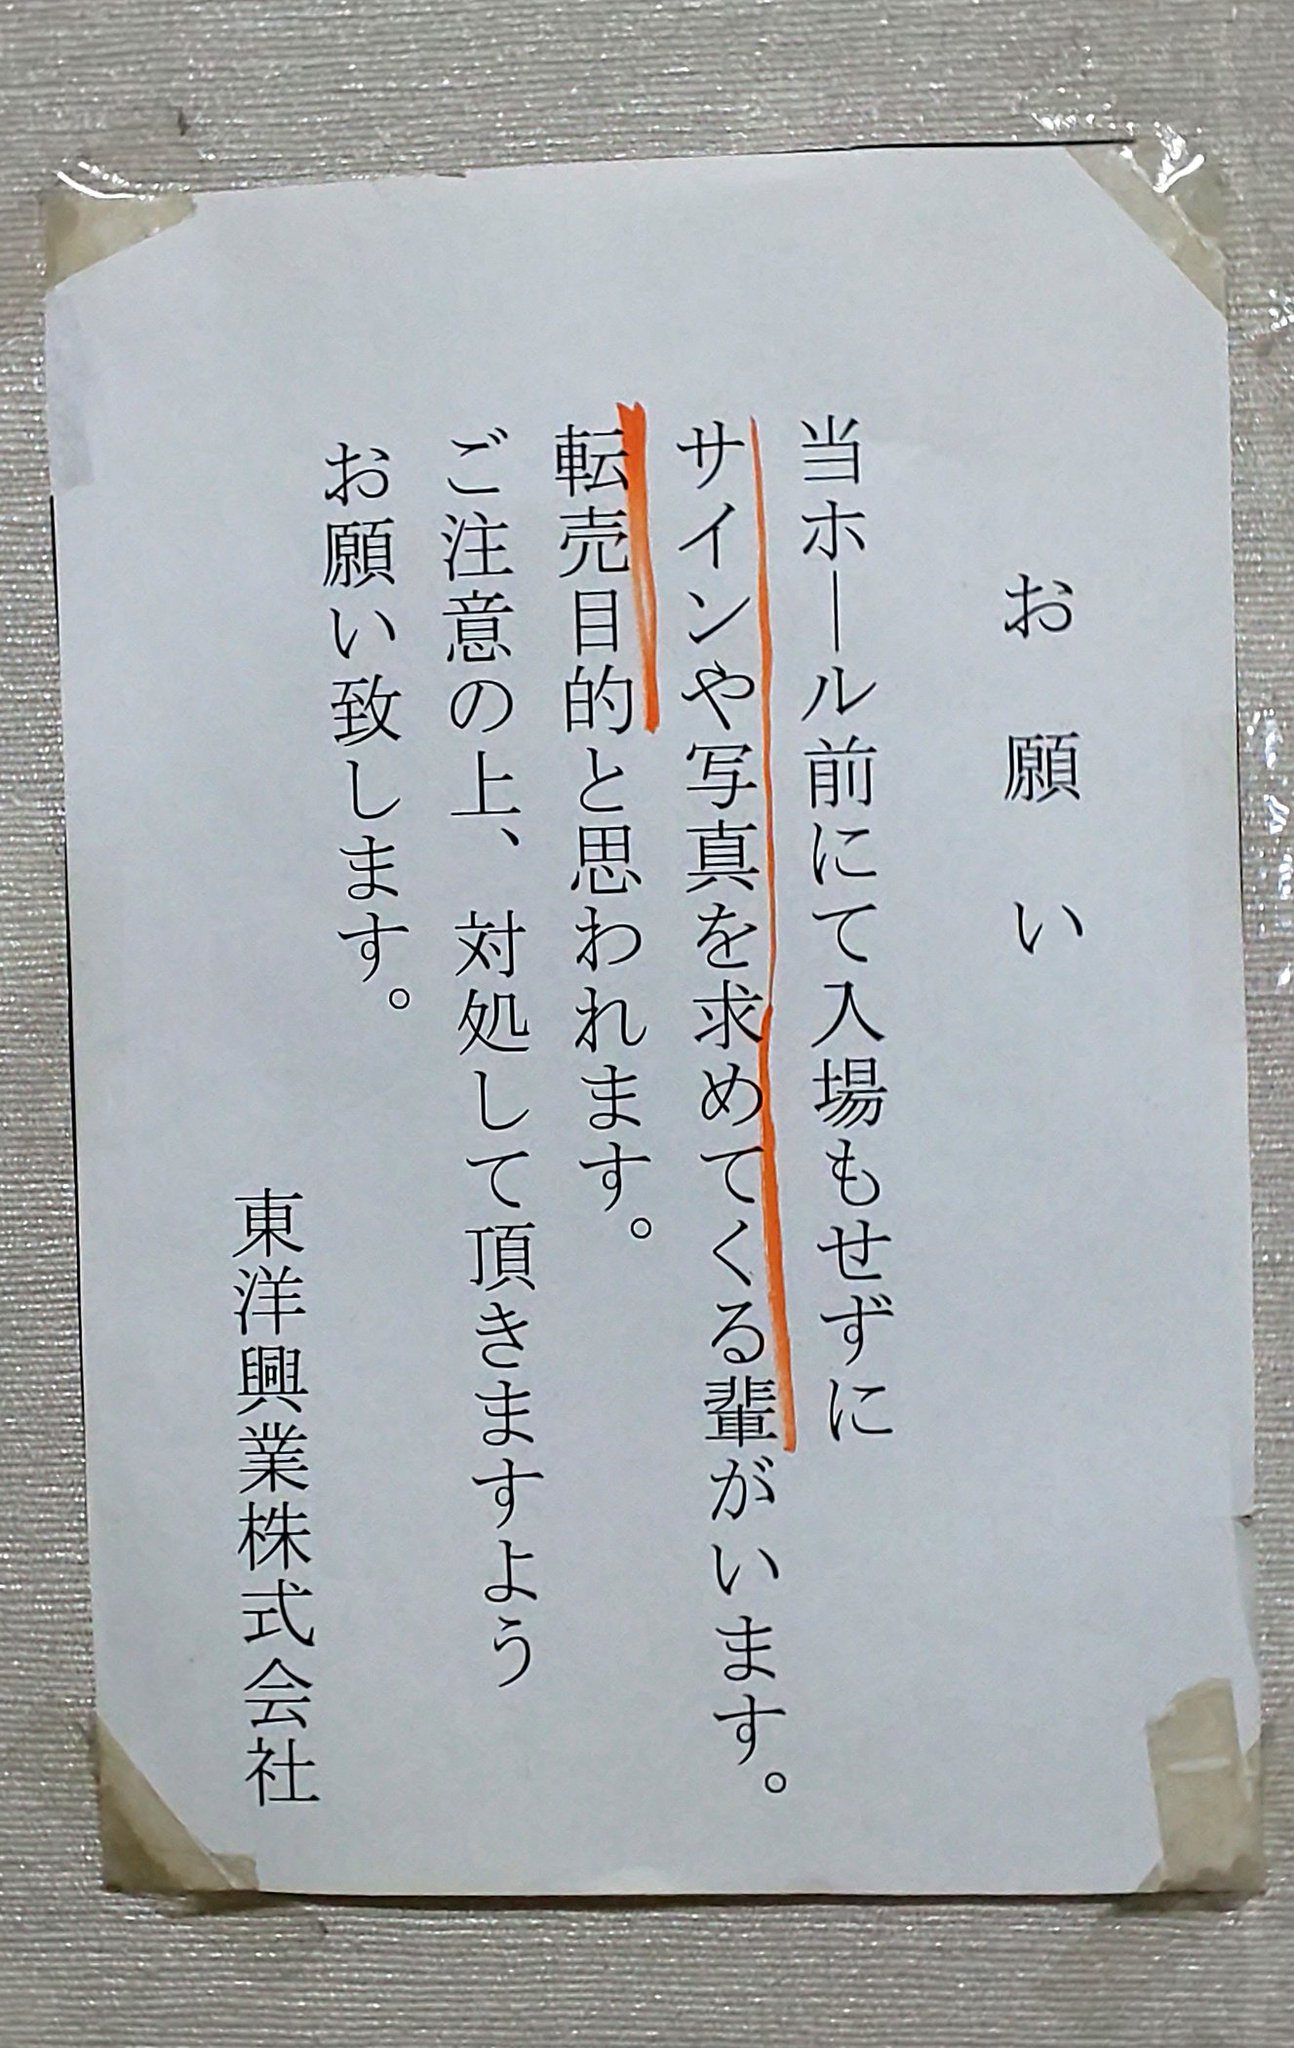 お願い
当ホール前にて入場もせずに
サインや写真を求めてくる輩がいます。
転売目的と思われます。
ご注意の上、対処して頂きますよう
お願い致します。
東洋興業株式会社